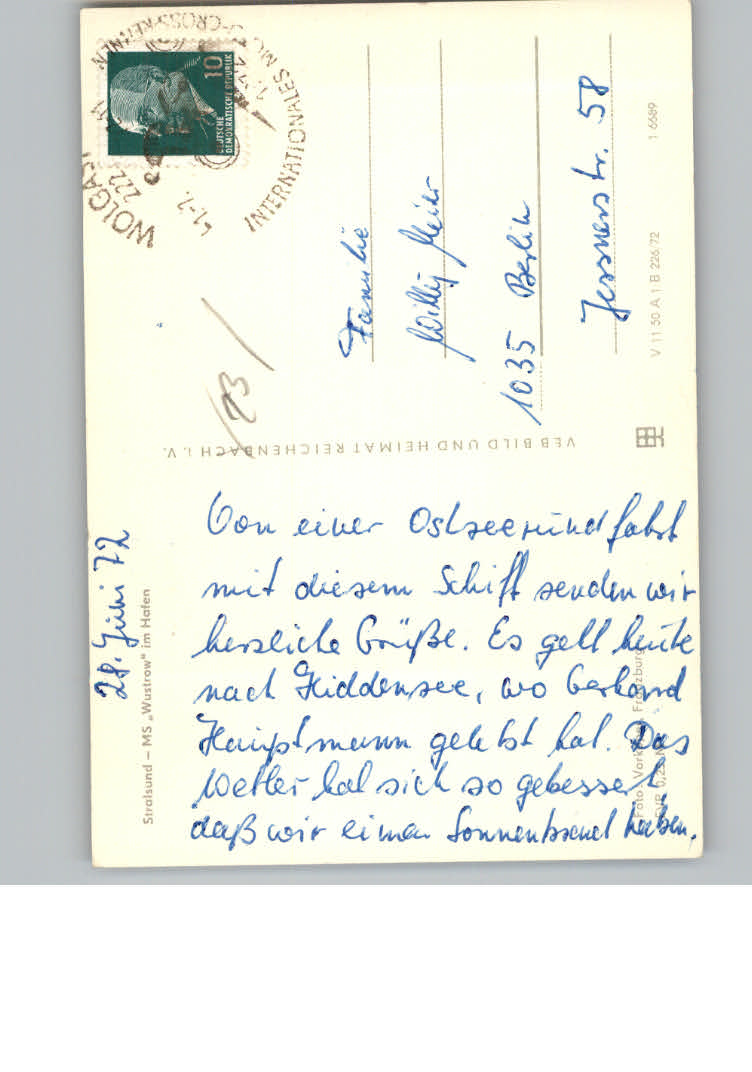 28. Juni 72
Stralsund – MS „Wustrow" im Hafen
Von einer Ostseerundfahrt
mit diesem Schiff senden wir
herzliche Grüße. Es geht heute
nach Hiddensee, wo Gerhard
Hauptmann gelebt hat. Das
Wetter hat sich so gebessert,
daß wir einen Sonnenbrand haben.
Foto: Franzburg
VEB BILD UND HEIMAT REICHENBACH i. V.
WOLGAST
222
INTERNATIONALES
10
DEUTSCHE
DEMOKRATISCHE REPUBLIK
23
Familie
Willy Meier
1035 Berlin
Jessnerstr. 58
V 11 50 A 1 B 226/72
1 6689